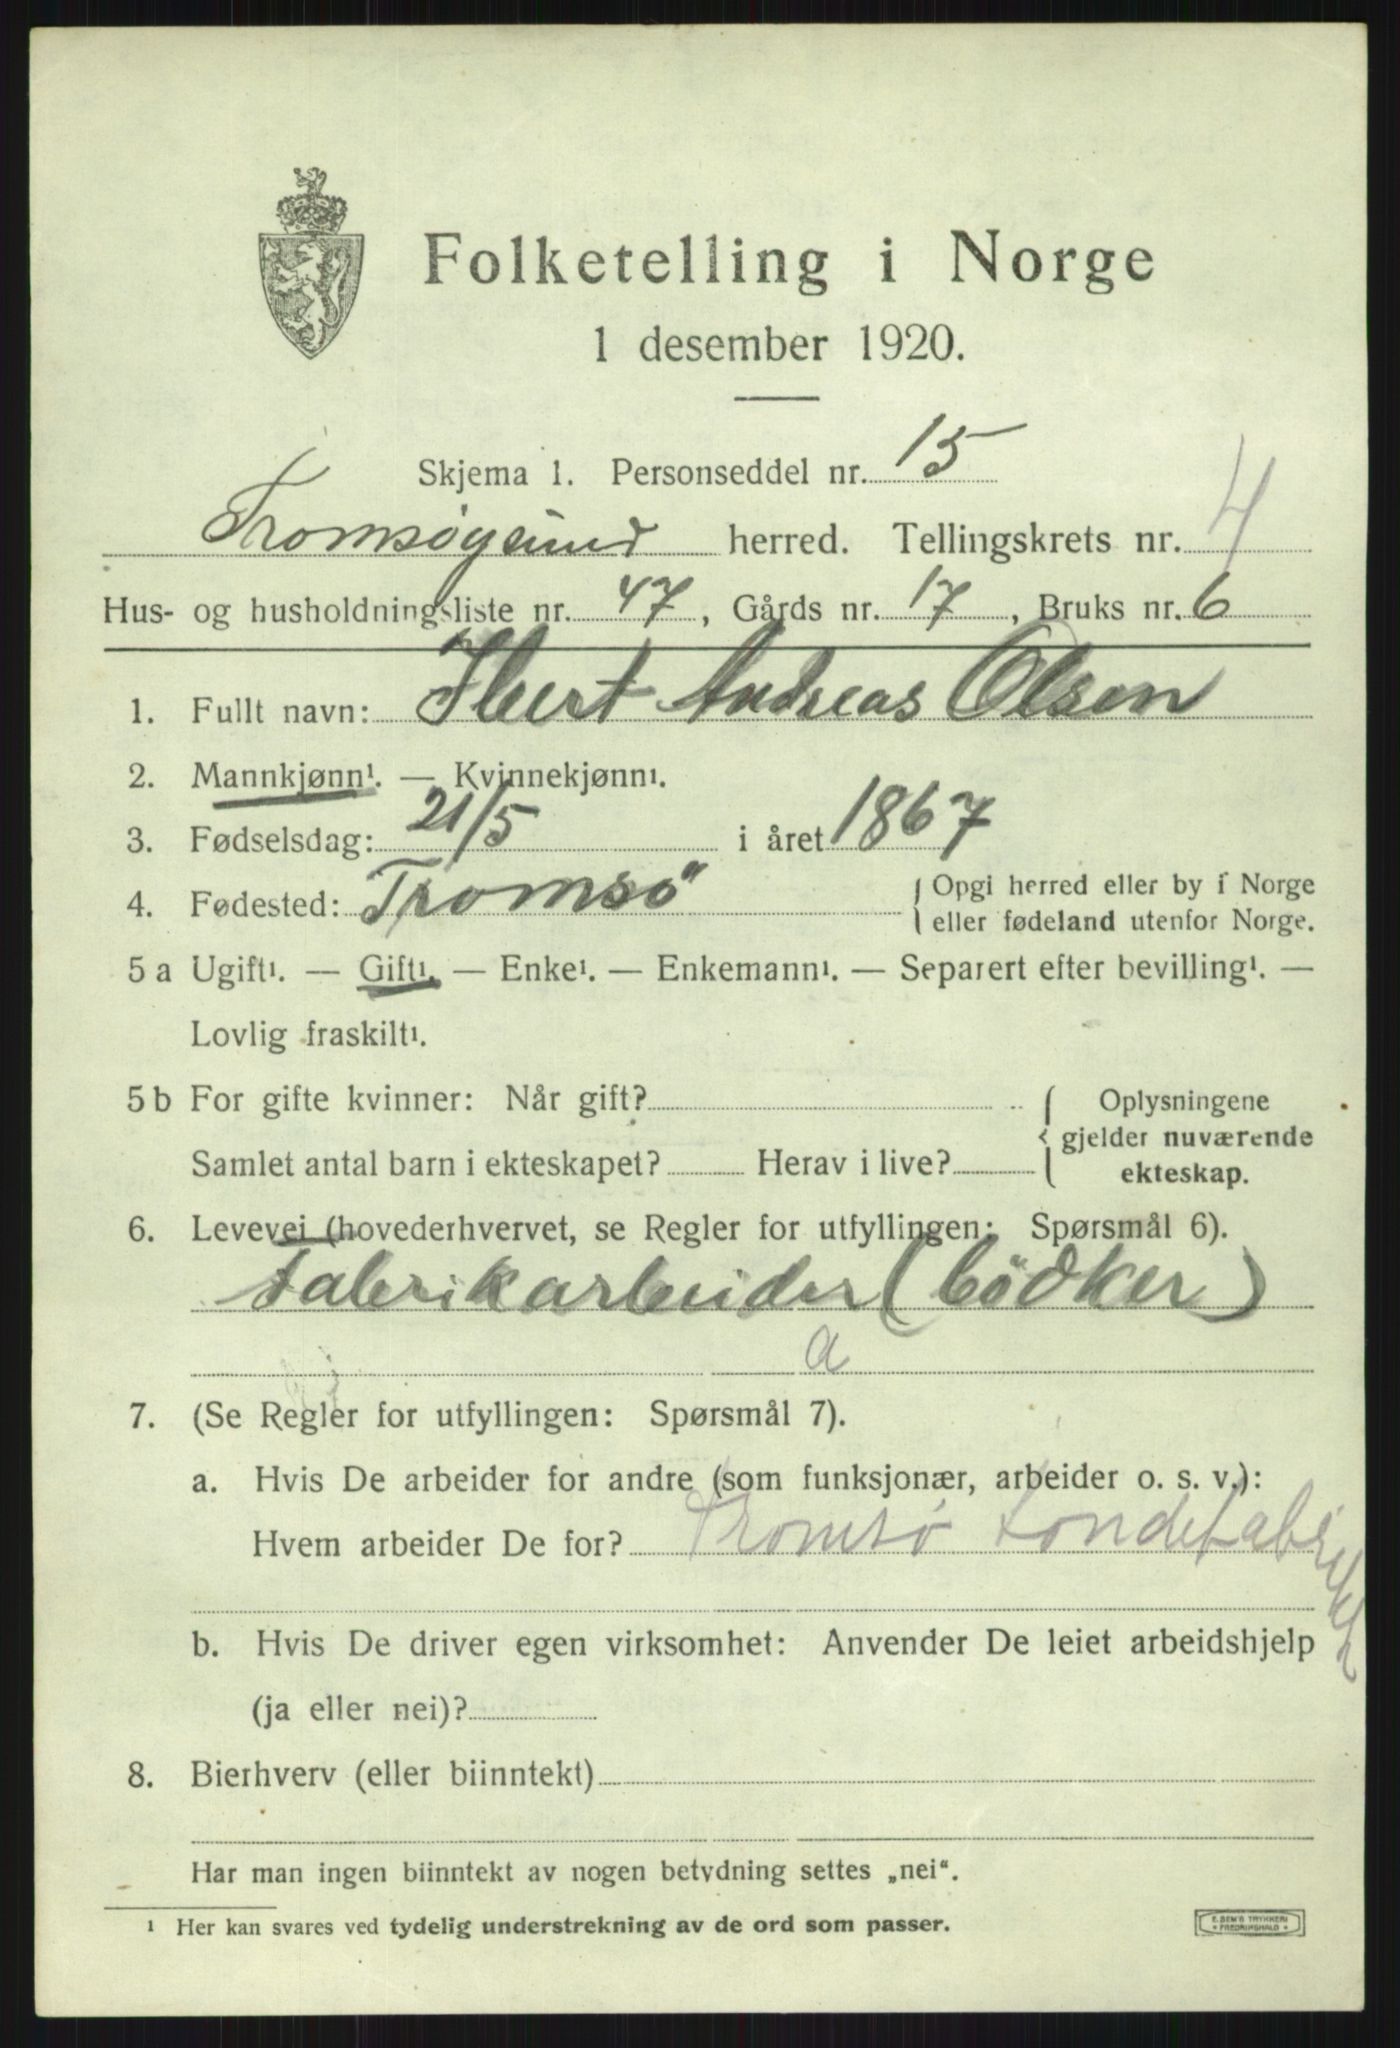 Folketelling i Norge
1 desember 1920.
Skjema 1. Personseddel nr. 15
Tromsøysund herred. Tellingskrets nr. 4
Hus- og husholdningsliste nr. 47, Gårds nr. 17, Bruks nr. 6
1. Fullt navn: Andreas Olsen
2. Mannkjønn¹. — Kvinnekjønn¹.
3. Fødselsdag: 21/5 i året 1867
4. Fødested: Tromsö
Opgi herred eller by i Norge
eller fødeland utenfor Norge.
5 a Ugift¹. — Gift¹. — Enke¹. — Enkemann¹. — Separert efter bevilling¹. —
Lovlig fraskilt¹.
5 b For gifte kvinner: Når gift?
Samlet antal barn i ekteskapet? Herav i live?
Oplysningene
gjelder nuværende
ekteskap.
6. Levevei (hovederhvervet, se Regler for utfyllingen: Spørsmål 6).
Fabrikarbeider (bödker)
a
7. (Se Regler for utfyllingen: Spørsmål 7).
a. Hvis De arbeider for andre (som funksjonær, arbeider o. s. v.):
Hvem arbeider De for? Tromsø Töndefabrikk
b. Hvis De driver egen virksomhet: Anvender De leiet arbeidshjelp
(ja eller nei)?
8. Bierhverv (eller biinntekt)
Har man ingen biinntekt av nogen betydning settes „nei“.
¹ Her kan svares ved tydelig understrekning av de ord som passer.
E. SEM'S TRYKKERI
FREDRIKSHALD